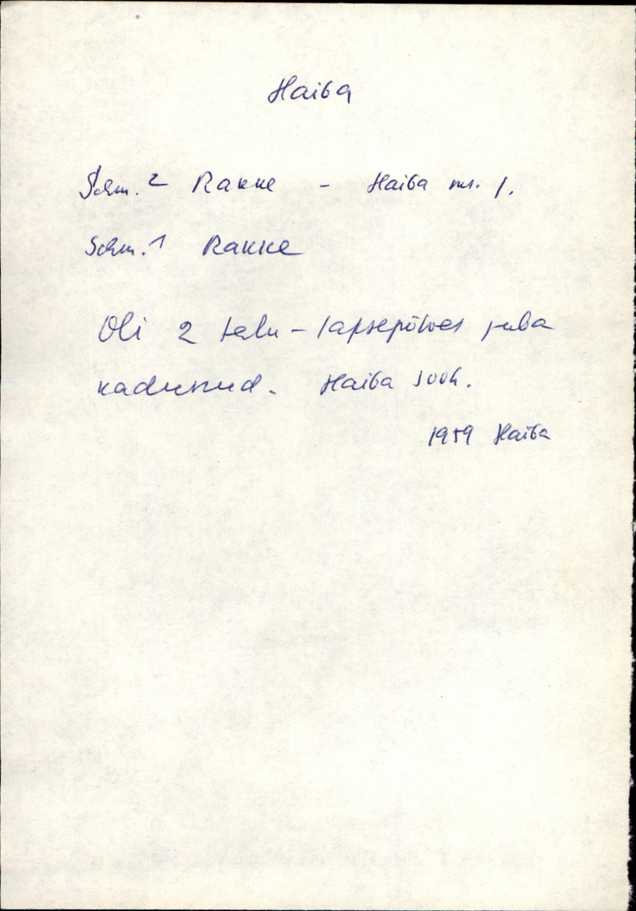 Haiba
Schm. 2 Rakke - Haiba mr. 1.
Schm. 1 Rakke
Oli 2 talu - lapsepõlves juba
kadunud. Haiba sooh.
1959 Haiba